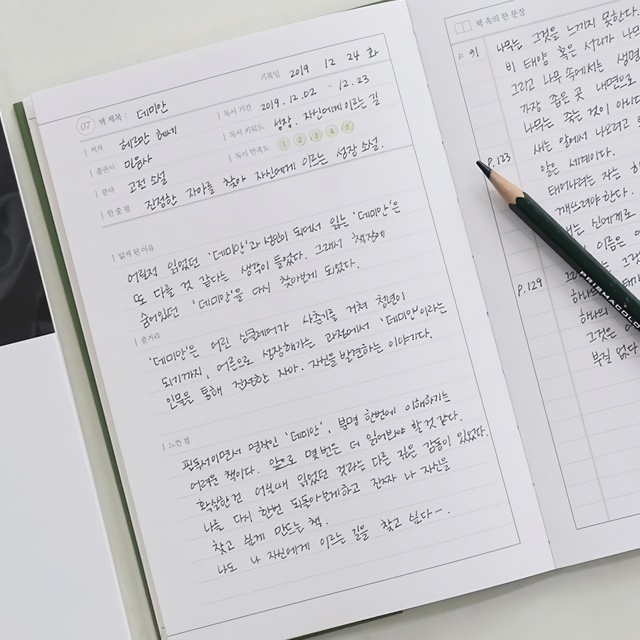 기록일 2019 12 24 화
07 책 제목 : 데미안
저자 헤르만 헤세
독서 기간 2019.12.02 ~ 12.23
출판사 민음사
독서 키워드 성장. 자신에게 이르는 길
분야 고전 소설
독서 만족도 1 2 3 4 5
한 줄 평 진정한 자아를 찾아 자신에게 이르는 성장 소설.
읽게 된 이유
어릴적 읽었던 '데미안'과 성인이 되어서 읽는 '데미안'은
또 다를 것 같다는 생각이 들었다. 그래서 책장에
숨어있던 '데미안'을 다시 찾아보게 되었다.
줄거리
'데미안'은 어린 싱클레어가 사춘기를 거쳐 청년이
되기까지, 어른으로 성장해가는 과정에서 '데미안'이라는
인물을 통해 진정한 자아, 자신을 발견하는 이야기다.
느낀 점
필독서이면서 명작인 '데미안'. 분명 한번에 이해하기는
어려운 책이다. 앞으로 몇번은 더 읽어봐야 할 것 같다.
확실한건 어릴때 읽었던 것과는 다른 깊은 감동이 있었다.
나를 다시 한번 되돌아보게하고 진짜 나 자신을
찾고 싶게 만드는 책.
나도 나 자신에게 이르는 길을 찾고 싶다-.
책 속의 한 문장
p.91 나무는 그것을 느끼지 못한다.
비 태양 혹은 서리가 나무
그리고 나무 속에서는 생명
가장 좁은 곳 내면으로
나무는 죽는 것이 아니
p.123 새는 알에서 나오려고
알은 세계이다.
태어나려는 자는 하
깨뜨려야 한다.
새는 신에게로
이름은
p.129
하나의
그것은
부질 없
PRISMACOLO